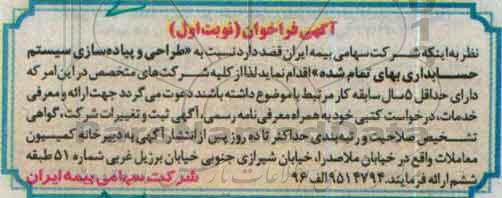 آگهی فراخوان (نوبت اول)
نظر به اینکه شرکت سهامی بیمه ایران قصد دارد نسبت به «طراحی و پیاده سازی سیستم
حسابداری بهای تمام شده» اقدام نماید لذا از کلیه شرکت‌های متخصص در این امر که
دارای حداقل ۵ سال سابقه کار مرتبط با موضوع داشته باشند دعوت می‌گردد جهت ارائه و معرفی
خدمات، درخواست کتبی خود به همراه معرفی نامه رسمی، آگهی ثبت و تغییرات شرکت، گواهی
تشخیص صلاحیت و رتبه‌بندی حداکثر تا ده روز پس از انتشار آگهی به دبیرخانه کمیسیون
معاملات واقع در خیابان ملاصدرا، خیابان شیرازی جنوبی خیابان برزیل غربی شماره ۵۱ طبقه
ششم ارائه فرمایند. ۹۵۱۴۷۹۴ الف ۹۶
شرکت سهامی بیمه ایران